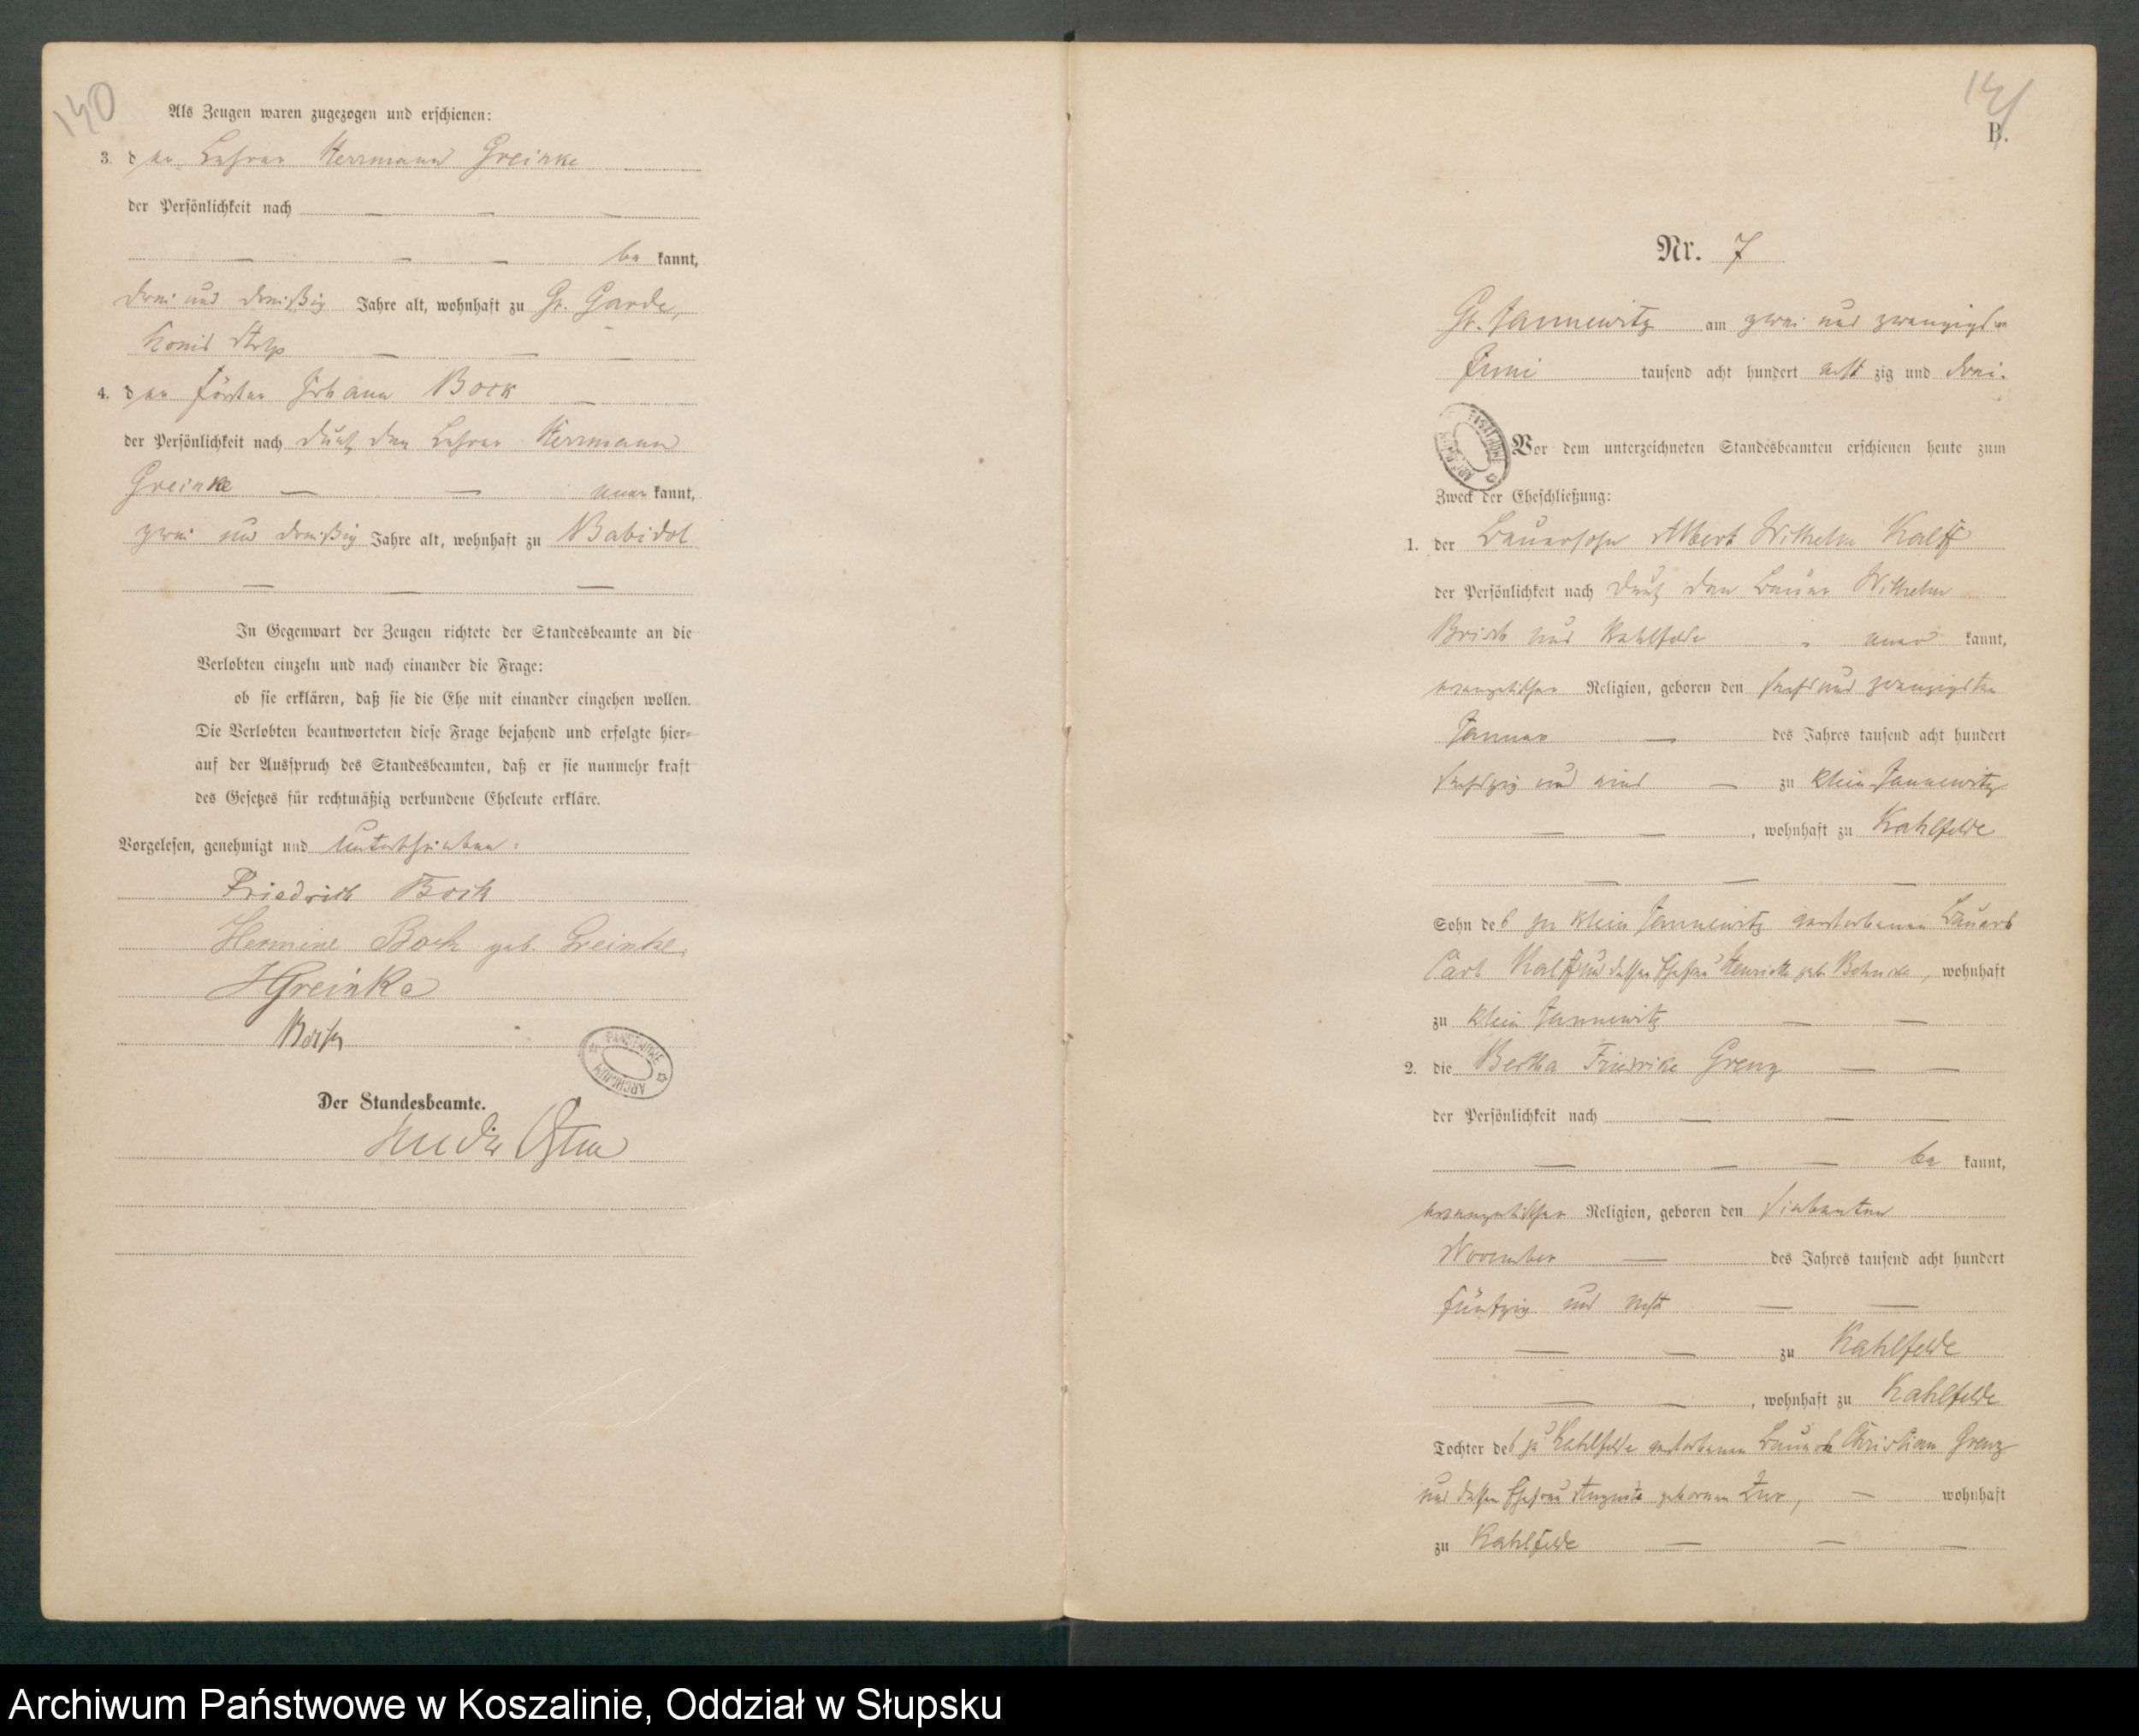 140
Als Zeugen waren zugezogen und erschienen:
3. den Lehrer Herrmann Greinke
der Persönlichkeit nach
be kannt,
drei und dreißig Jahre alt, wohnhaft zu Gr. Garde,
Kreis Stolp
4. den Förster Johann Bock
der Persönlichkeit nach durch den Lehrer Herrmann
Greinke — — aner kannt,
zwei und dreißig Jahre alt, wohnhaft zu Babidol
In Gegenwart der Zeugen richtete der Standesbeamte an die
Verlobten einzeln und nach einander die Frage:
ob sie erklären, daß sie die Ehe mit einander eingehen wollen.
Die Verlobten beantworteten diese Frage bejahend und erfolgte hier-
auf der Ausspruch des Standesbeamten, daß er sie nunmehr kraft
des Gesetzes für rechtmäßig verbundene Eheleute erkläre.
Vorgelesen, genehmigt und unterschrieben:
Friedrich Bock
Hermine Bock geb. Greinke.
HGreinke
Bock
PAŃSTWOWE ARCHIWUM
Der Standesbeamte.
141
B.
Nr. 7
Gr. Jannewitz am zwei und zwanzigsten
Juni tausend acht hundert acht zig und drei.
PAŃSTWOWE ARCHIWUM
Vor dem unterzeichneten Standesbeamten erschienen heute zum
Zweck der Eheschließung:
1. der Bauersohn Albert Wilhelm
der Persönlichkeit nach durch den Bauer Wilhelm
aus Kahlfelde aner kannt,
evangelischer Religion, geboren den sechs und zwanzigsten
Januar — des Jahres tausend acht hundert
sechszig und eins — zu Klein Jannewitz
— — , wohnhaft zu Kahlfelde
Sohn des zu Klein Jannewitz verstorbenen Bauers
Carl und dessen Ehefrau Henriette geb. , wohnhaft
zu Klein Jannewitz — —
2. die Bertha Friedrike Grenz — —
der Persönlichkeit nach — — —
— — — be kannt,
evangelischer Religion, geboren den siebenten
November — des Jahres tausend acht hundert
fünfzig und acht — —
— — zu Kahlfelde
— — , wohnhaft zu Kahlfelde
Tochter des zu Kahlfelde verstorbenen Bauers Christian Grenz
und dessen Ehefrau Auguste geborenen — wohnhaft
zu Kahlfelde — — —
Archiwum Państwowe w Koszalinie, Oddział w Słupsku